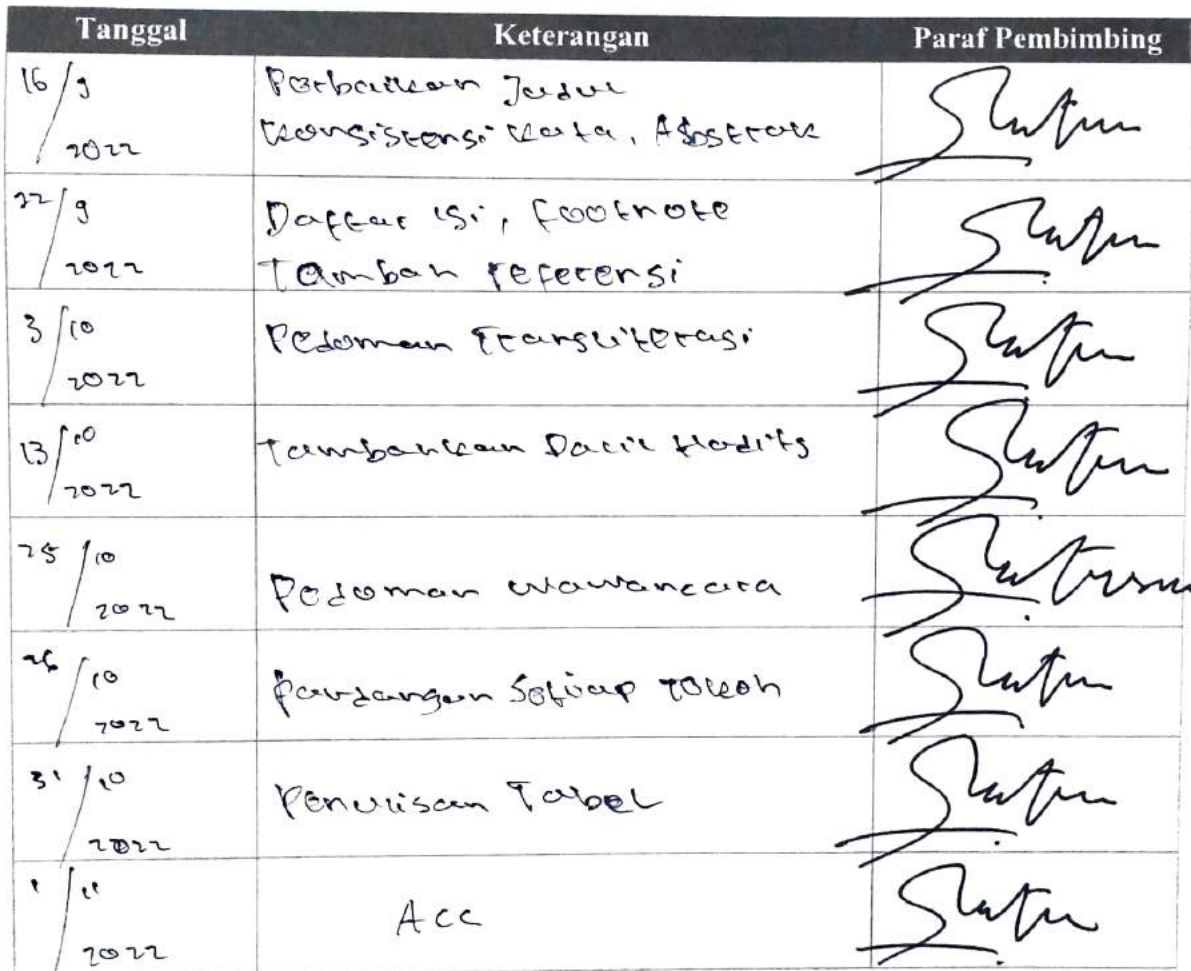 Tanggal Keterangan Paraf Pembimbing
16/9 2022 Perbaikan Judul
Konsistensi Kata, Abstrak
22/9 2022 Daftar isi, footnote
Tambah referensi
3/10 2022 Pedoman Transliterasi
13/10 2022 Tambahkan Dalil Hadits
25/10 2022 Pedoman wawancara
26/10 2022 Pandangan Setiap Tokoh
31/10 2022 Penulisan Tabel
1/11 2022 Acc